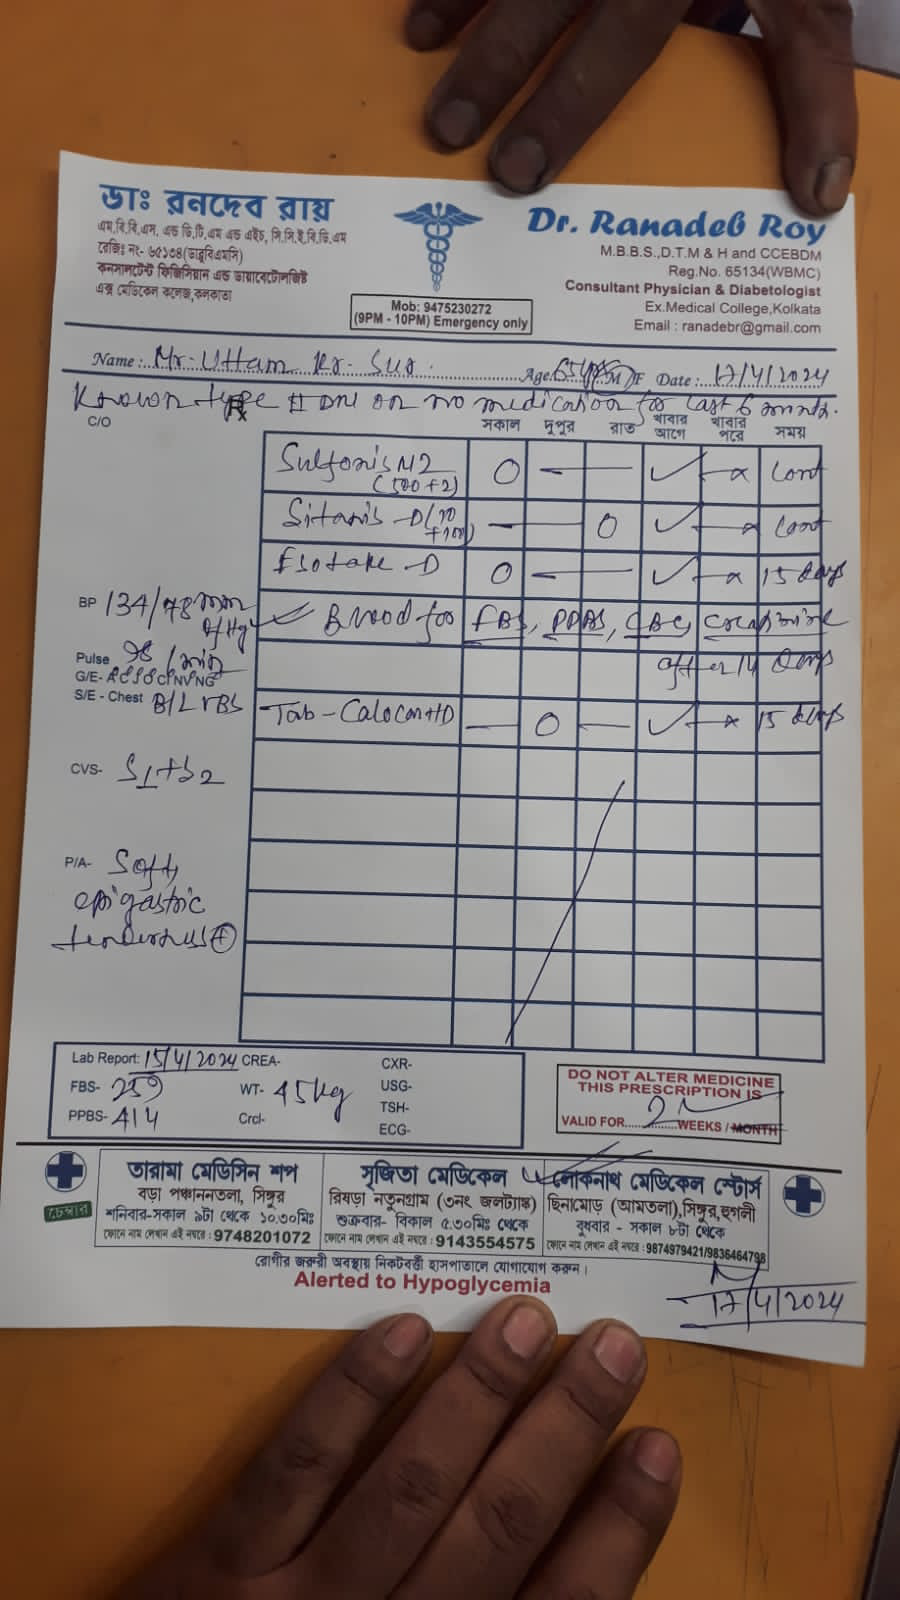 ডাঃ রনদেব রায়
এম.বি.বি.এস, এন্ড ডি.টি.এম এন্ড এইচ, সি.সি.ই.বি.ডি.এম
রেজিঃ নং- ৬৫১৩৪(ডাব্লুবিএমসি)
কনসালটেন্ট ফিজিসিয়ান এন্ড ডায়াবেটোলজিষ্ট
এক্স মেডিকেল কলেজ,কলকাতা
Mob: 9475230272
(9PM - 10PM) Emergency only
Dr. Ranadeb Roy
M.B.B.S.,D.T.M & H and CCEBDM
Reg.No. 65134(WBMC)
Consultant Physician & Diabetologist
Ex.Medical College,Kolkata
Email : ranadebr@gmail.com
Name : Mr. Uttam Kr. Sur. Age. 65 yrs M/F Date : 17/4/2024
Known type II DM on no medication for last 6 month.
C/O
সকাল দুপুর রাত খাবার আগে খাবার পরে সময়
(500+2) 0 — — ✓ — x Cont
— — 0 ✓ — x Cont
-D 0 — — ✓ — x 15 days
BP 134/78 mm of Hg
Blood for FBS, PPBS, CBC, Creatinine
after 14 days
Pulse 98 /min
G/E-
S/E - Chest B/L VBS
Tab - — 0 — ✓ — x 15 days
CVS- S1+S2
P/A- Soft,
epigastric
tenderness (+)
Lab Report: 15/4/2024 CREA- CXR-
FBS- 259 WT- 45kg USG-
PPBS- 414 Crcl- TSH-
ECG-
DO NOT ALTER MEDICINE
THIS PRESCRIPTION IS
VALID FOR 2 WEEKS / MONTH
চেম্বার
তারামা মেডিসিন শপ
বড়া পঞ্চাননতলা, সিঙ্গুর
শনিবার-সকাল ৯টা থেকে ১০.৩০মিঃ
ফোনে নাম লেখান এই নম্বরে : 9748201072
সৃজিতা মেডিকেল
রিষড়া নতুনগ্রাম (৩নং জলট্যাঙ্ক)
শুক্রবার- বিকাল ৫.৩০মিঃ থেকে
ফোনে নাম লেখান এই নম্বরে : 9143554575
লোকনাথ মেডিকেল স্টোর্স
ছিনামোড় (আমতলা),সিঙ্গুর,হুগলী
বুধবার - সকাল ৮টা থেকে
ফোনে নাম লেখান এই নম্বরে : 9874979421/9836464798
রোগীর জরুরী অবস্থায় নিকটবর্ত্তী হাসপাতালে যোগাযোগ করুন।
Alerted to Hypoglycemia
17/4/2024